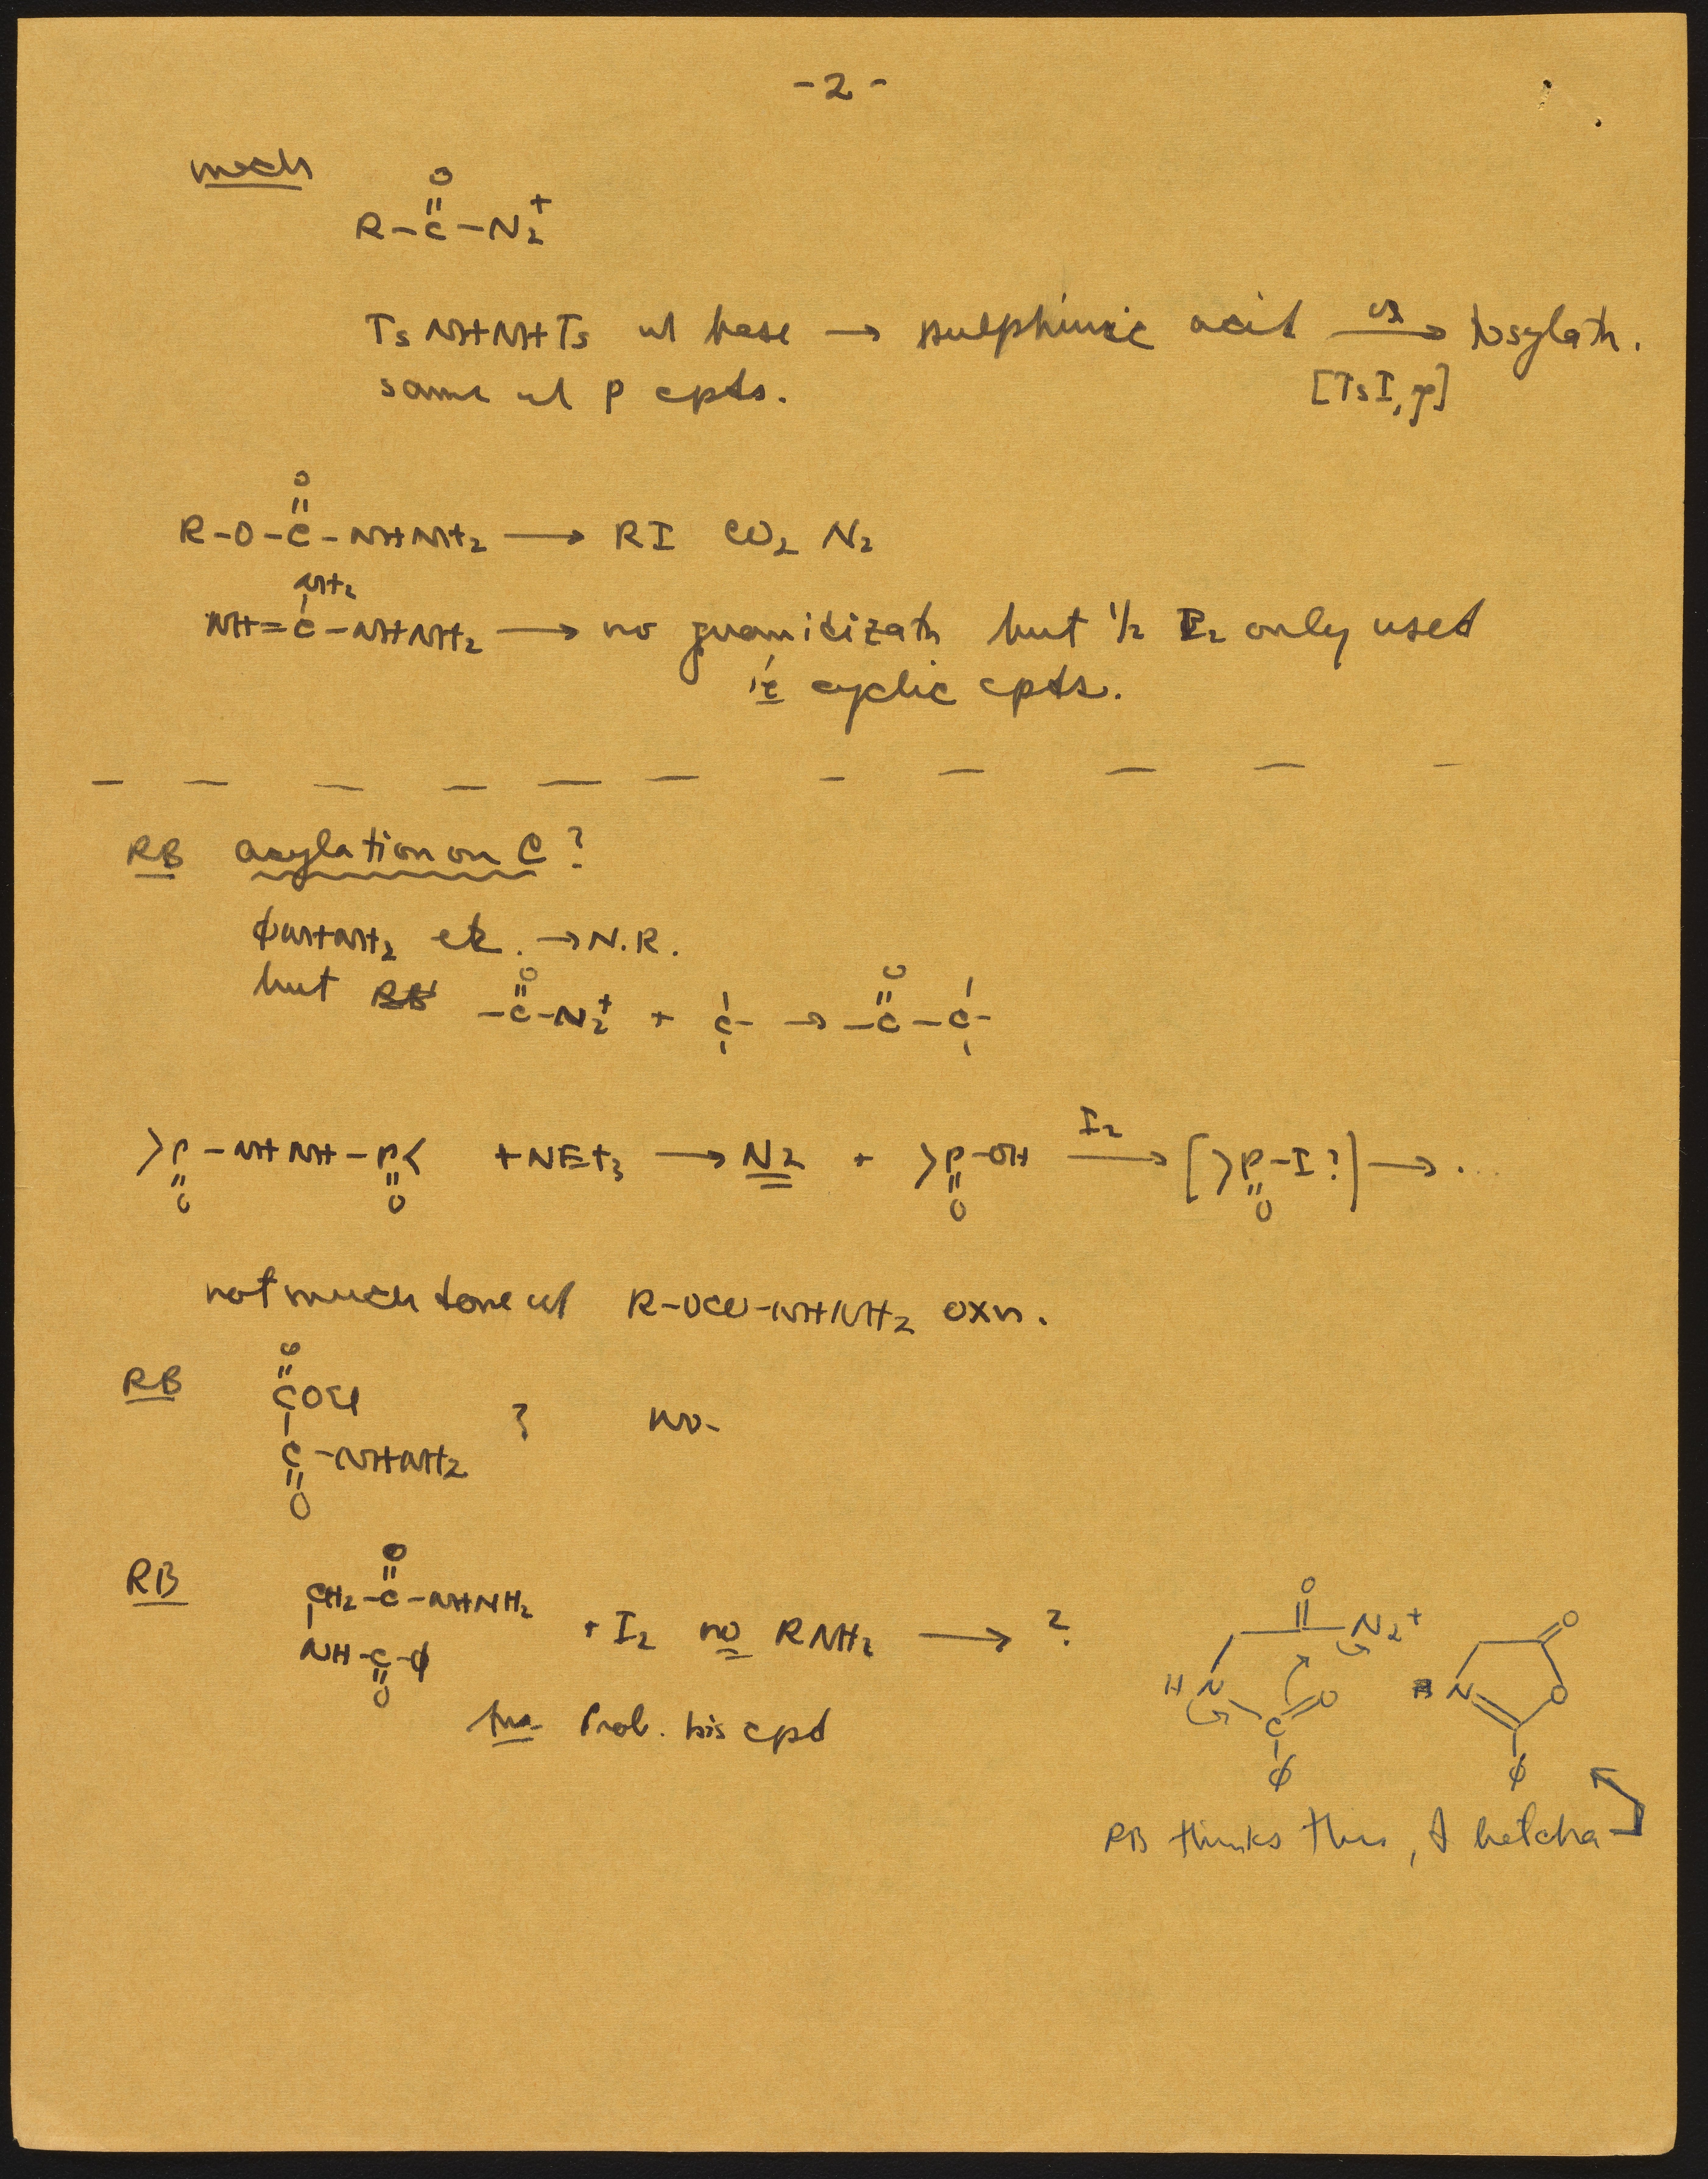 - 2 -
mech
O
R-C-N2+
TsNHNHTs w/ base → sulphinic acid → tosylatn.
same w/ P cpds. [TsI, ]
O
R-O-C-NHNH2 → RI CO2 N2
NH2
NH=C-NHNH2 → no guanidizatn but 1/2 I2 only used
ie cyclic cpds.
RB acylation on C?
φNHNH2 etc. → N.R.
O O
but -C-N2+ + C- → -C-C-
I2
>P-NHNH-P< + NEt3 → N2 + >P-OH → [>P-I?] → ...
O O O O
not much done w/ R-OCO-NHNH2 oxn.
O
RB COEt
? no-
C-NHNH2
O
O
RB CH2-C-NHNH2
+ I2 no RNH2 → ?
NH-C-φ
O
Prob. bis cpd
O
N2+ O
H N O N O
C
φ φ
RB thinks this, I betcha